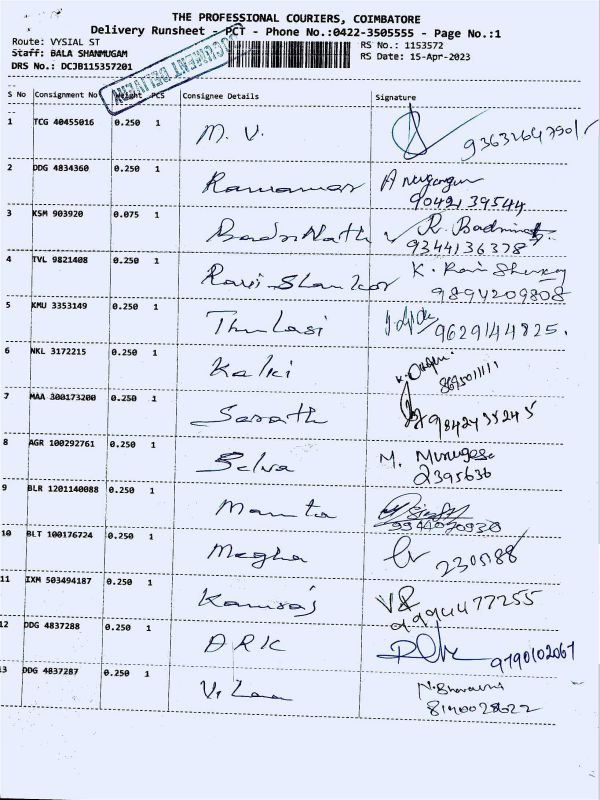 THE PROFESSIONAL COURIERS, COIMBATORE
Delivery Runsheet - PCT - Phone No.:0422-3505555 - Page No.:1
Route: VYSIAL ST
RS No.: 1153572
Staff: BALA SHANMUGAM
RS Date: 15-Apr-2023
DRS No.: DCJB115357201
S No Consignment No Weight PCS Consignee Details Signature
1 TCG 40455016 0.250 1 M. V.
2 DDG 4834360 0.250 1
9042139544
3 KSM 903920 0.075 1 BadriNath R. Badrinath
9344136378
4 TVL 9821408 0.250 1 Ravi Shankar K. Ravi Shankar
9894209808
5 KMU 3353149 0.250 1 Thulasi 9629144825.
6 NKL 3172215 0.250 1 Kalki
7 MAA 300173200 0.250 1 Sarath
8 AGR 100292761 0.250 1 Selva M. Murugesa
2395636
9 BLR 1201140088 0.250 1 Mamta
9944020930
10 BLT 100176724 0.250 1 Megha
11 IXM 503494187 0.250 1 Kamraj
9994477255
12 DDG 4837288 0.250 1 ARK 9790102067
13 DDG 4837287 0.250 1